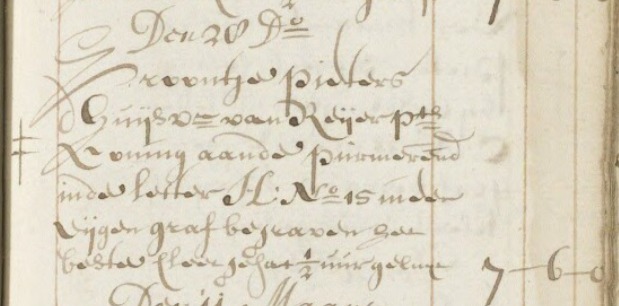 Den 28 Do
Tryntje Pieters
Huijsvr van Reijer Ptsz
Koning aande Purmerend
inde Letter H: No 15 in een
eijgen graf begraven het
beste kleet gehat ½ uur geluijt 7-6-0